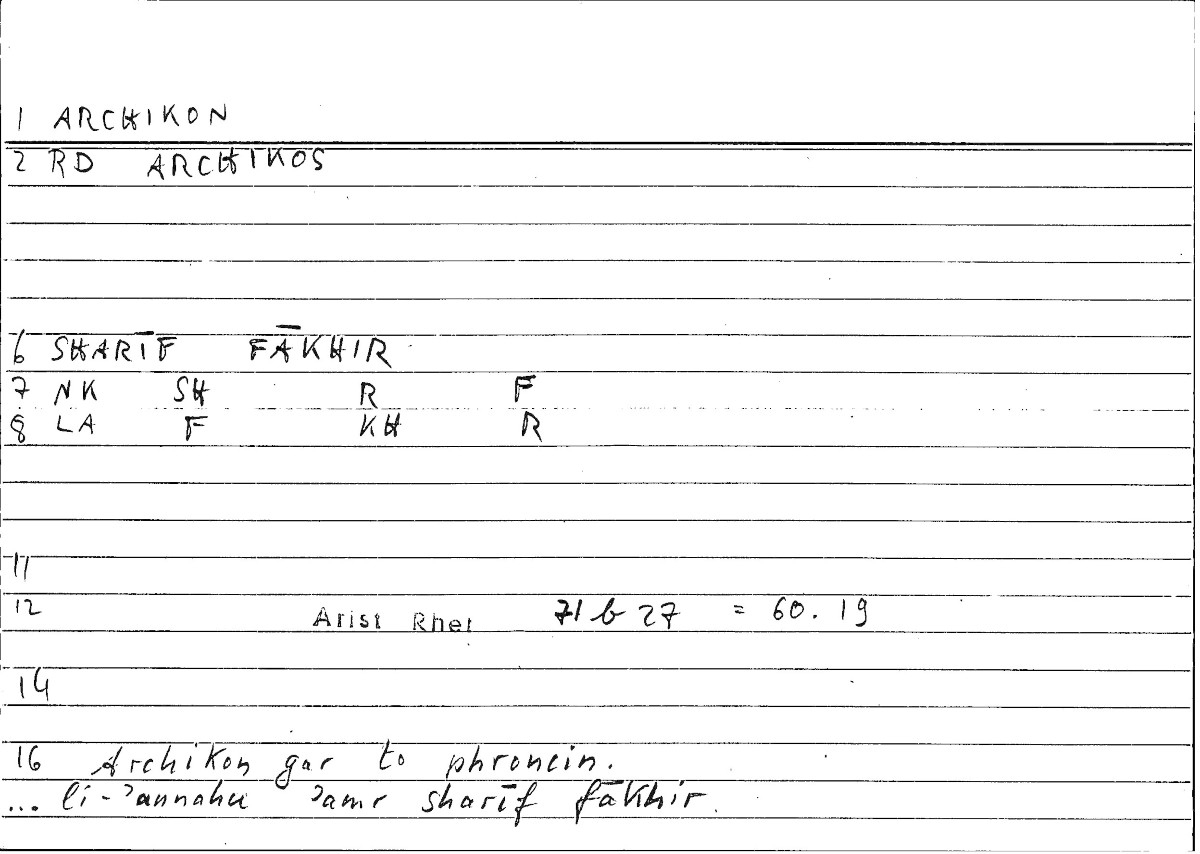 1 ARCHIKON
2 RD ARCHIKOS
6 SHARĪF FĀKHIR
7 NK SH R F
8 LA F KH R
11
12 Arist Rhet 71 b 27 = 60.19
14
16 Archikon gar to phronein.
... li-ʾannahu ʾamr sharīf fākhir.